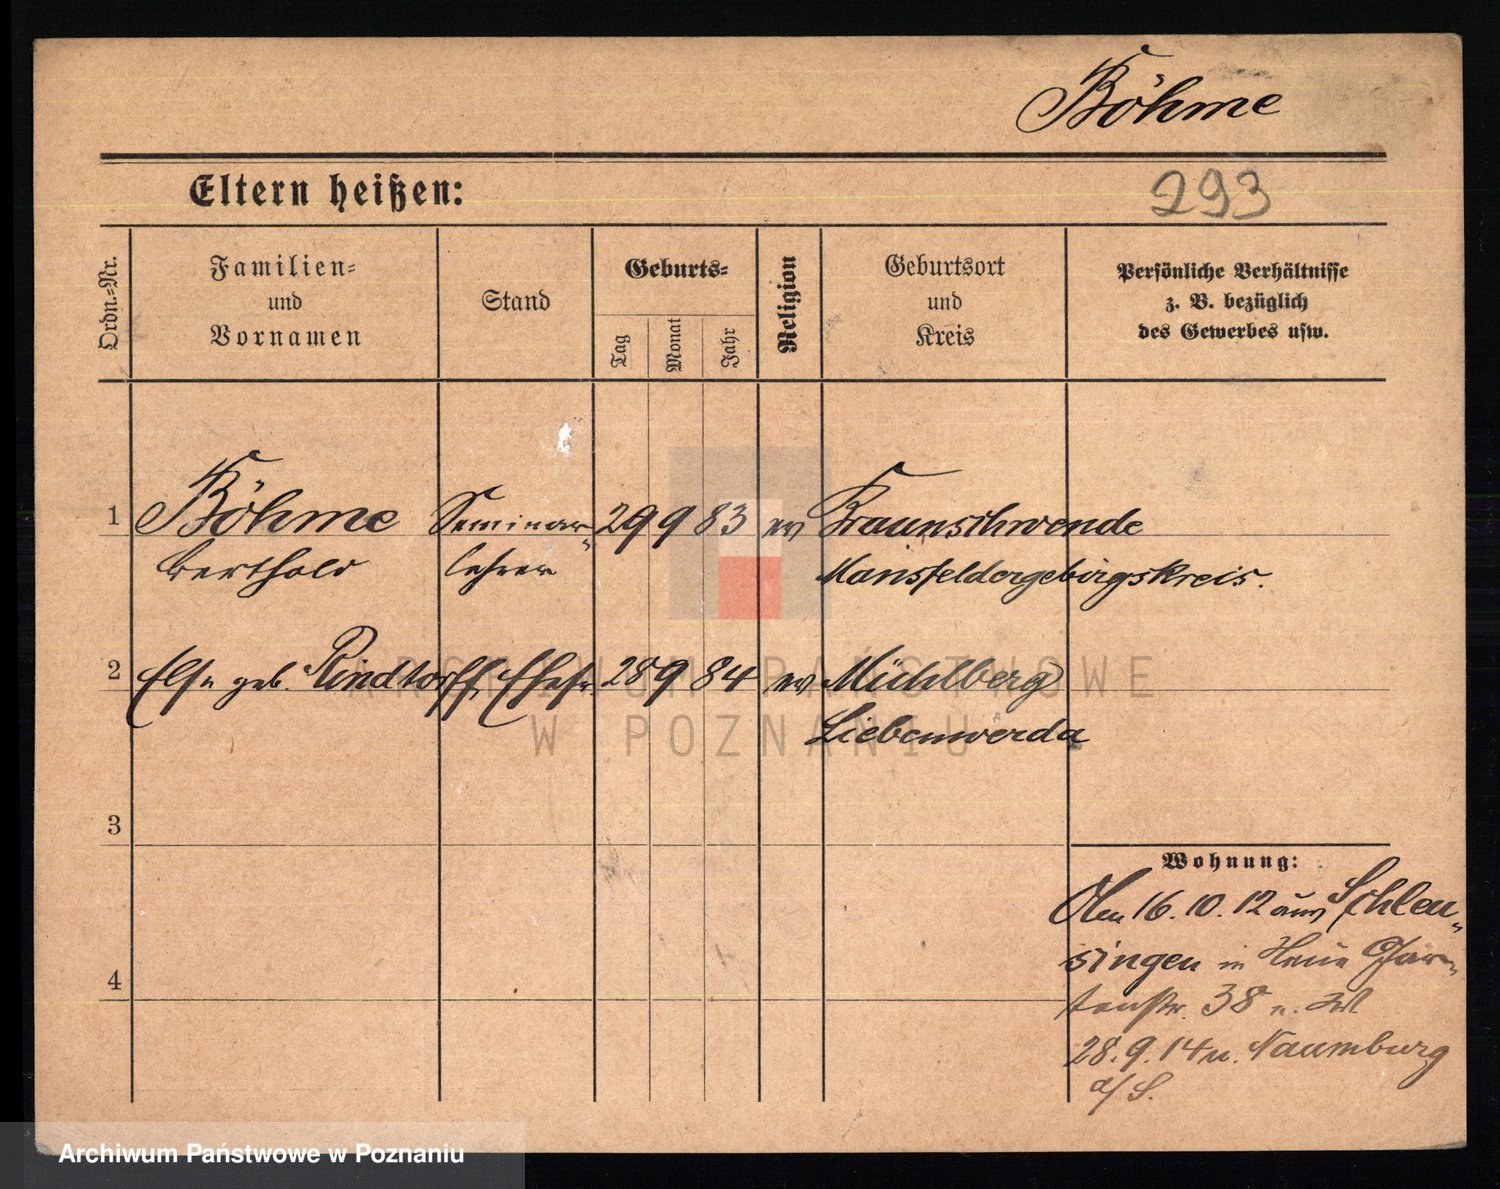 Böhme
Eltern heißen:
293
Ordn.=Nr.
Familien=
und
Vornamen
Stand
Geburts=
Tag
Monat
Jahr
Religion
Geburtsort
und
Kreis
Persönliche Verhältnisse
z. B. bezüglich
des Gewerbes usw.
1 Böhme Seminar= 29 9 83 ev Braunschwende
Berthold lehrer Mansfeldergebirgskreis.
2 Else geb. Rindtorff, Ehefr. 28 9 84 ev Mühlberg
Liebenwerda
3
4
Wohnung:
16. 10. 12 aus Schleu=
singen in Neue Gar=
tenstr. 38
28. 9. 14 n. Naumburg
a/S.
ARCHIWUM PAŃSTWOWE
W POZNANIU
Archiwum Państwowe w Poznaniu